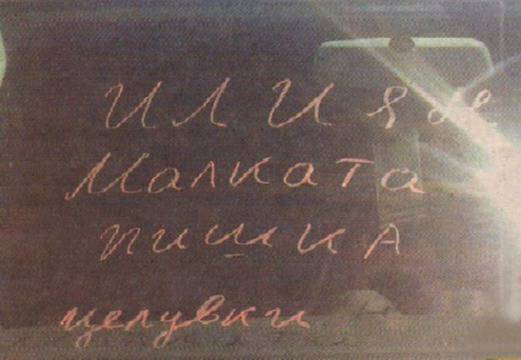 ИЛИЯ
Малката
пишкА
целувки